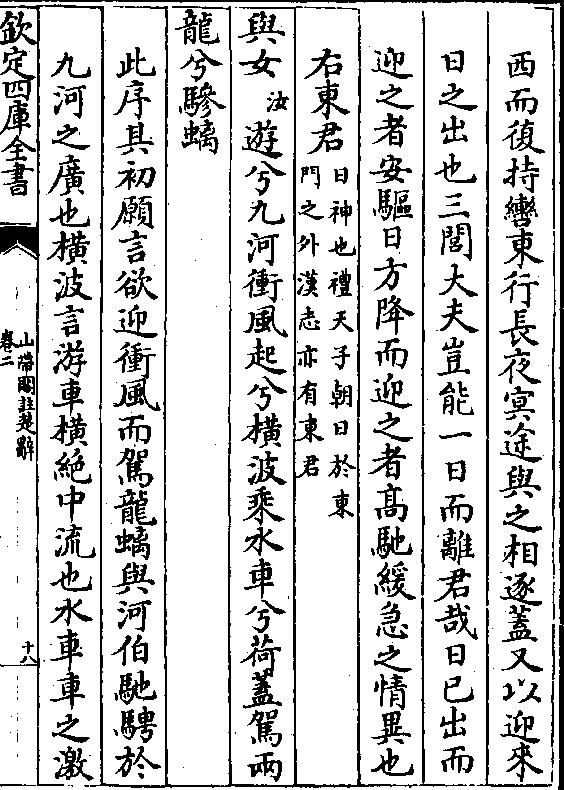 西而復持轡東行長夜㝠途與之相逐葢又以迎來
日之出也三閭大夫豈能一日而離君哉日已出而
迎之者安驅日方降而迎之者髙馳緩急之情異也
右東君日神也禮天子朝日於東門之外漢志亦有東君
與女汝遊兮九河衝風起兮橫波乘水車兮荷蓋駕兩
龍兮驂螭
此序其初願言欲迎衝風而駕龍螭與河伯馳騁於
九河之廣也橫波言游車橫絶中流也水車車之激
欽定四庫全書
山帶閣註楚辭
卷二
十八